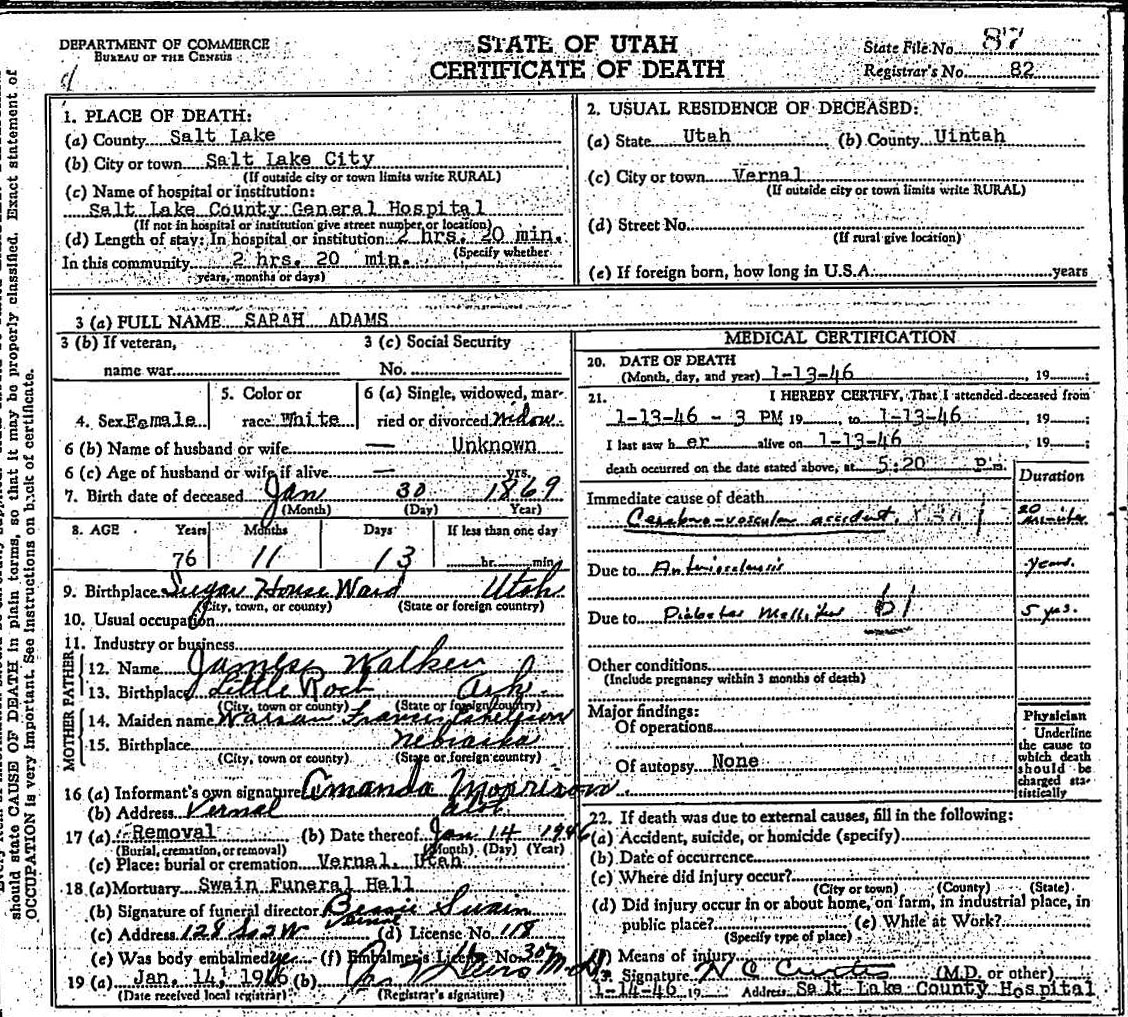 DEPARTMENT OF COMMERCE
BUREAU OF THE CENSUS
STATE OF UTAH
CERTIFICATE OF DEATH
State File No. 87
Registrar's No. 82
should state CAUSE OF DEATH in plain terms, so that it may be properly classified. Exact statement of
OCCUPATION is very important. See instructions on back of certificate.
1. PLACE OF DEATH:
(a) County Salt Lake
(b) City or town Salt Lake City
(If outside city or town limits write RURAL)
(c) Name of hospital or institution:
Salt Lake County General Hospital
(If not in hospital or institution give street number or location)
(d) Length of stay: In hospital or institution 2 hrs. 20 min.
(Specify whether
In this community 2 hrs. 20 min.
years, months or days)
2. USUAL RESIDENCE OF DECEASED:
(a) State Utah (b) County Uintah
(c) City or town Vernal
(If outside city or town limits write RURAL)
(d) Street No.
(If rural give location)
(e) If foreign born, how long in U.S.A. years
3 (a) FULL NAME SARAH ADAMS
3 (b) If veteran, 3 (c) Social Security
name war No.
4. Sex Female 5. Color or race White 6 (a) Single, widowed, married or divorced Widow
6 (b) Name of husband or wife — Unknown
6 (c) Age of husband or wife if alive — yrs.
7. Birth date of deceased Jan 30 1869
(Month) (Day) Year)
8. AGE Years Months Days If less than one day
76 11 13 hr. min.
9. Birthplace Sugar House Ward Utah
(City, town, or county) (State or foreign country)
10. Usual occupation
11. Industry or business
FATHER
12. Name James Walker
13. Birthplace Little Rock Ark.
(City, town or county) (State or foreign country)
MOTHER
14. Maiden name Francis
15. Birthplace Nebraska
(City, town or county) (State or foreign country)
16 (a) Informant's own signature Amanda Morrison
(b) Address Vernal
17 (a) Removal (b) Date thereof Jan 14 1946
(Burial, cremation, or removal) (Month) (Day) (Year)
(c) Place: burial or cremation Vernal, Utah
18 (a) Mortuary Swain Funeral Hall
(b) Signature of funeral director Bessie Swain
Vernal
(c) Address 128 So 2 W (d) License No. 118
(e) Was body embalmed yes (f) Embalmer's License No. 307
19 (a) Jan. 14, 1946 (b)
(Date received local registrar) (Registrar's signature)
MEDICAL CERTIFICATION
20. DATE OF DEATH
(Month, day, and year) 1-13-46 , 19 ;
21. I HEREBY CERTIFY, That I attended deceased from
1-13-46 - 3 PM 19 , to 1-13-46 , 19 ;
I last saw her alive on 1-13-46 , 19 ;
death occurred on the date stated above, at 5:20 P.m.
Duration
Immediate cause of death
Cerebro-vascular accident 20 minutes
Due to Arteriosclerosis years.
Due to Diabetes Mellitus 61 5 yrs.
Other conditions
(Include pregnancy within 3 months of death)
Major findings:
Of operations
Of autopsy None
Physician
Underline
the cause to
which death
should be
charged sta-
tistically
22. If death was due to external causes, fill in the following:
(a) Accident, suicide, or homicide (specify)
(b) Date of occurrence
(c) Where did injury occur?
(City or town) (County) (State)
(d) Did injury occur in or about home, on farm, in industrial place, in
public place? (e) While at Work?
(Specify type of place)
(f) Means of injury
Signature N C Curtis (M.D. or other)
1-14-46 19 Address Salt Lake County Hospital